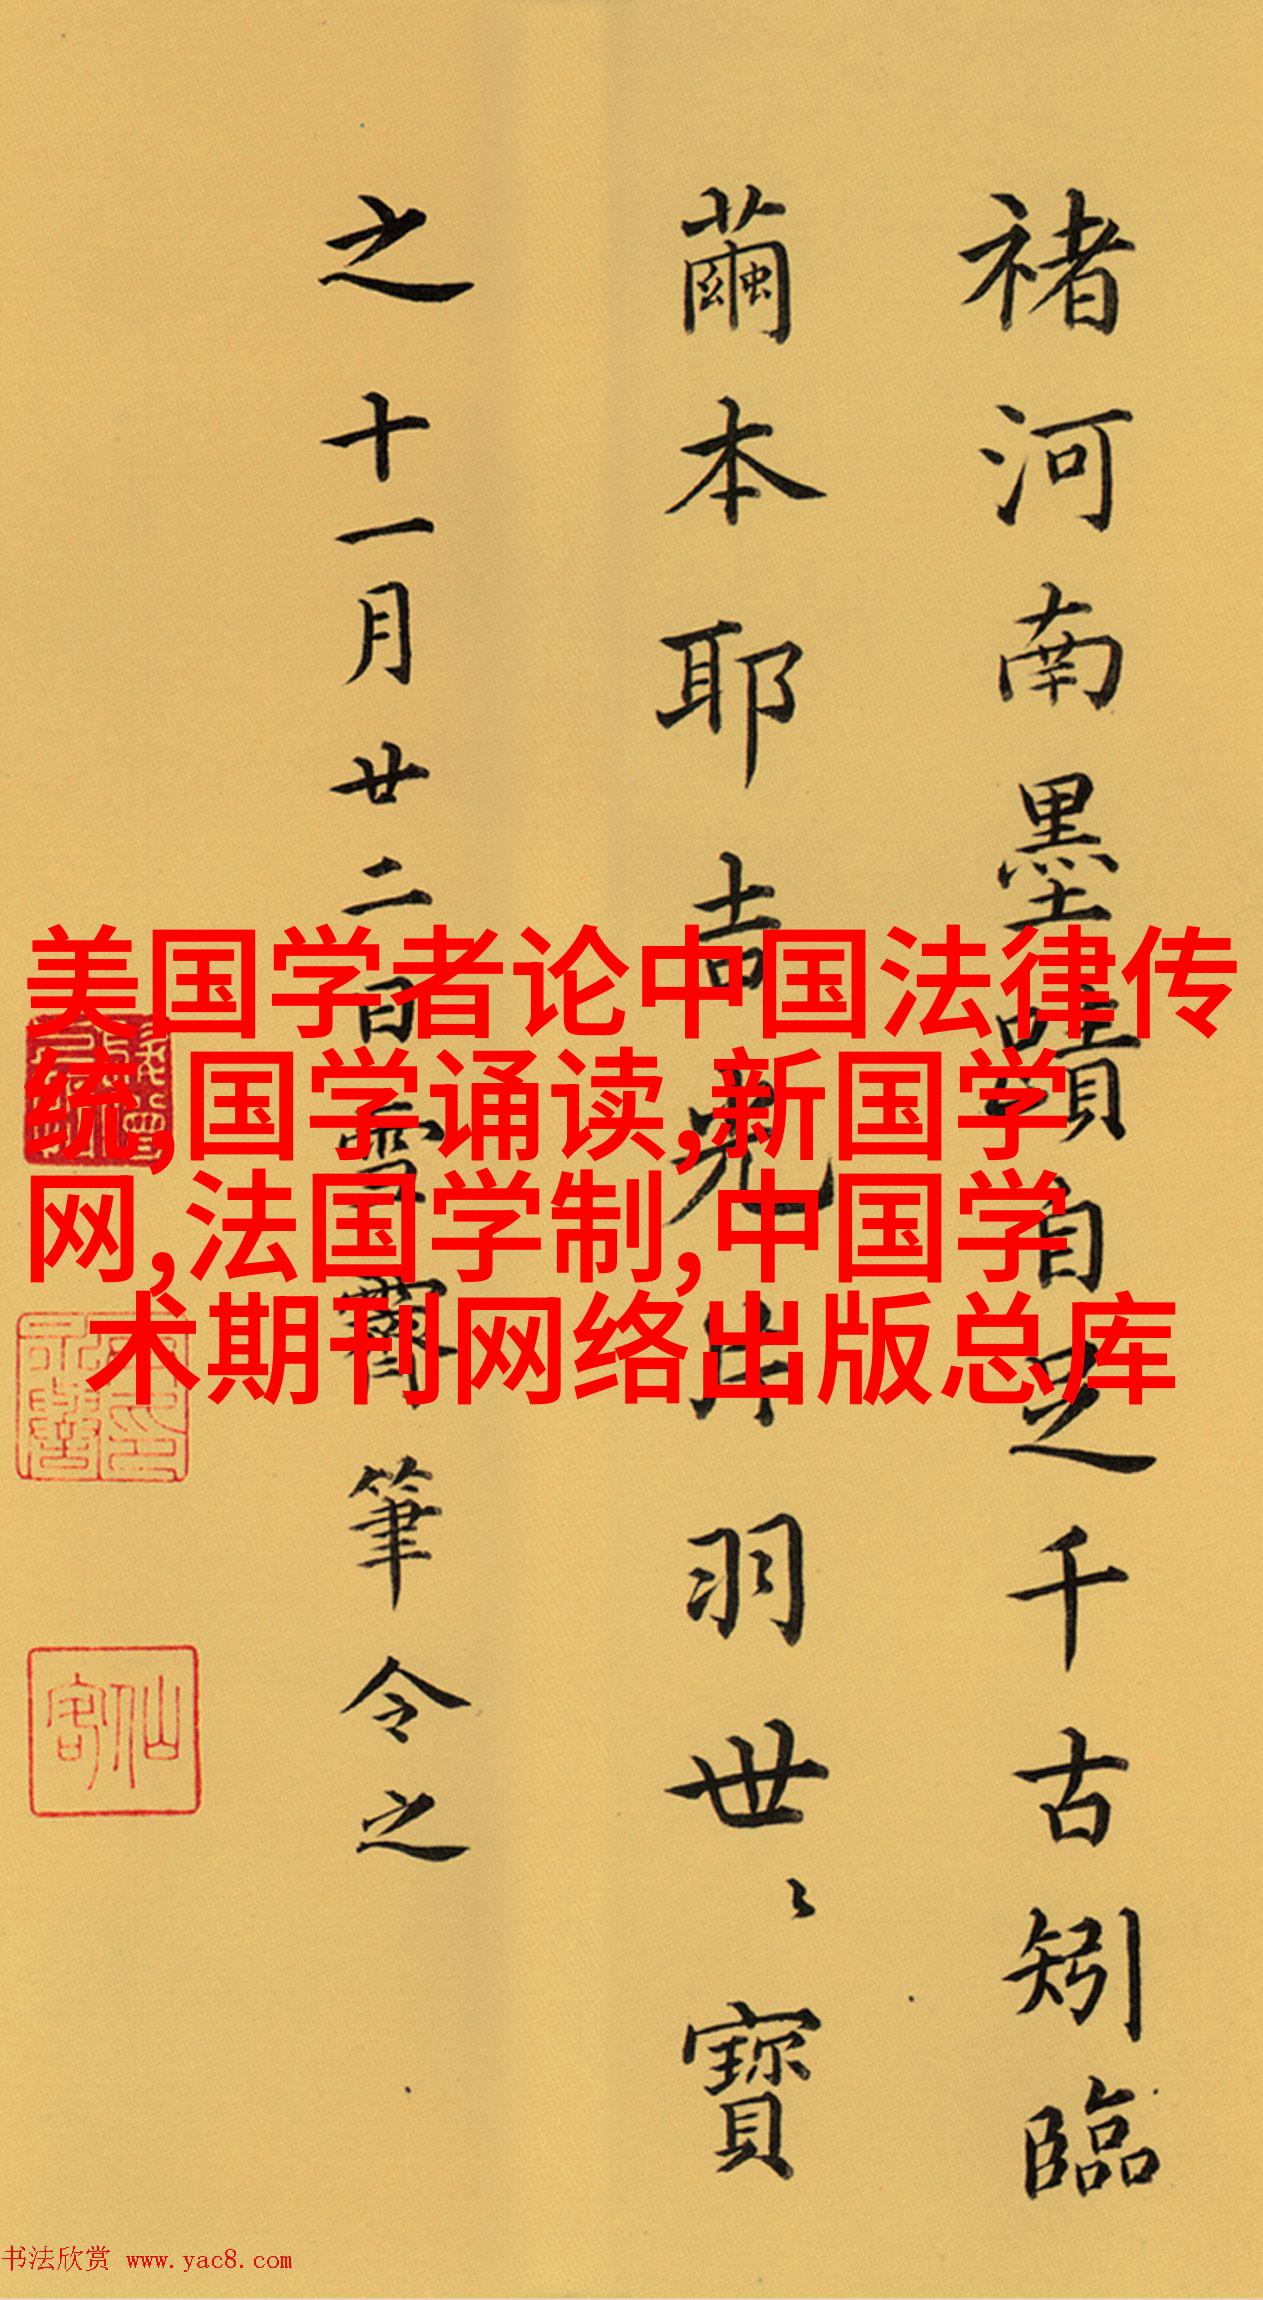 褚河南墨蹟自足千古矧臨
繭本耶吉光片羽世〻寶
之十一月廿二日雪霽筆令之
美国学者论中国法律传
统,国学诵读,新国学
网,法国学制,中国学
术期刊网络出版总库
仙客
书法欣赏 www.yac8.com